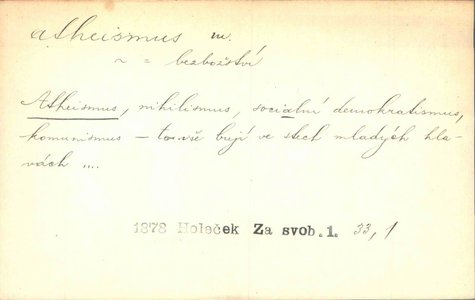 atheismus m.
~ = bezbožství
Atheismus, nihilismus, sociální demokratismus,
komunismus – to vše bují ve všech mladých hla-
vách ....
1878 Holeček Za svob. 1. 33, 1